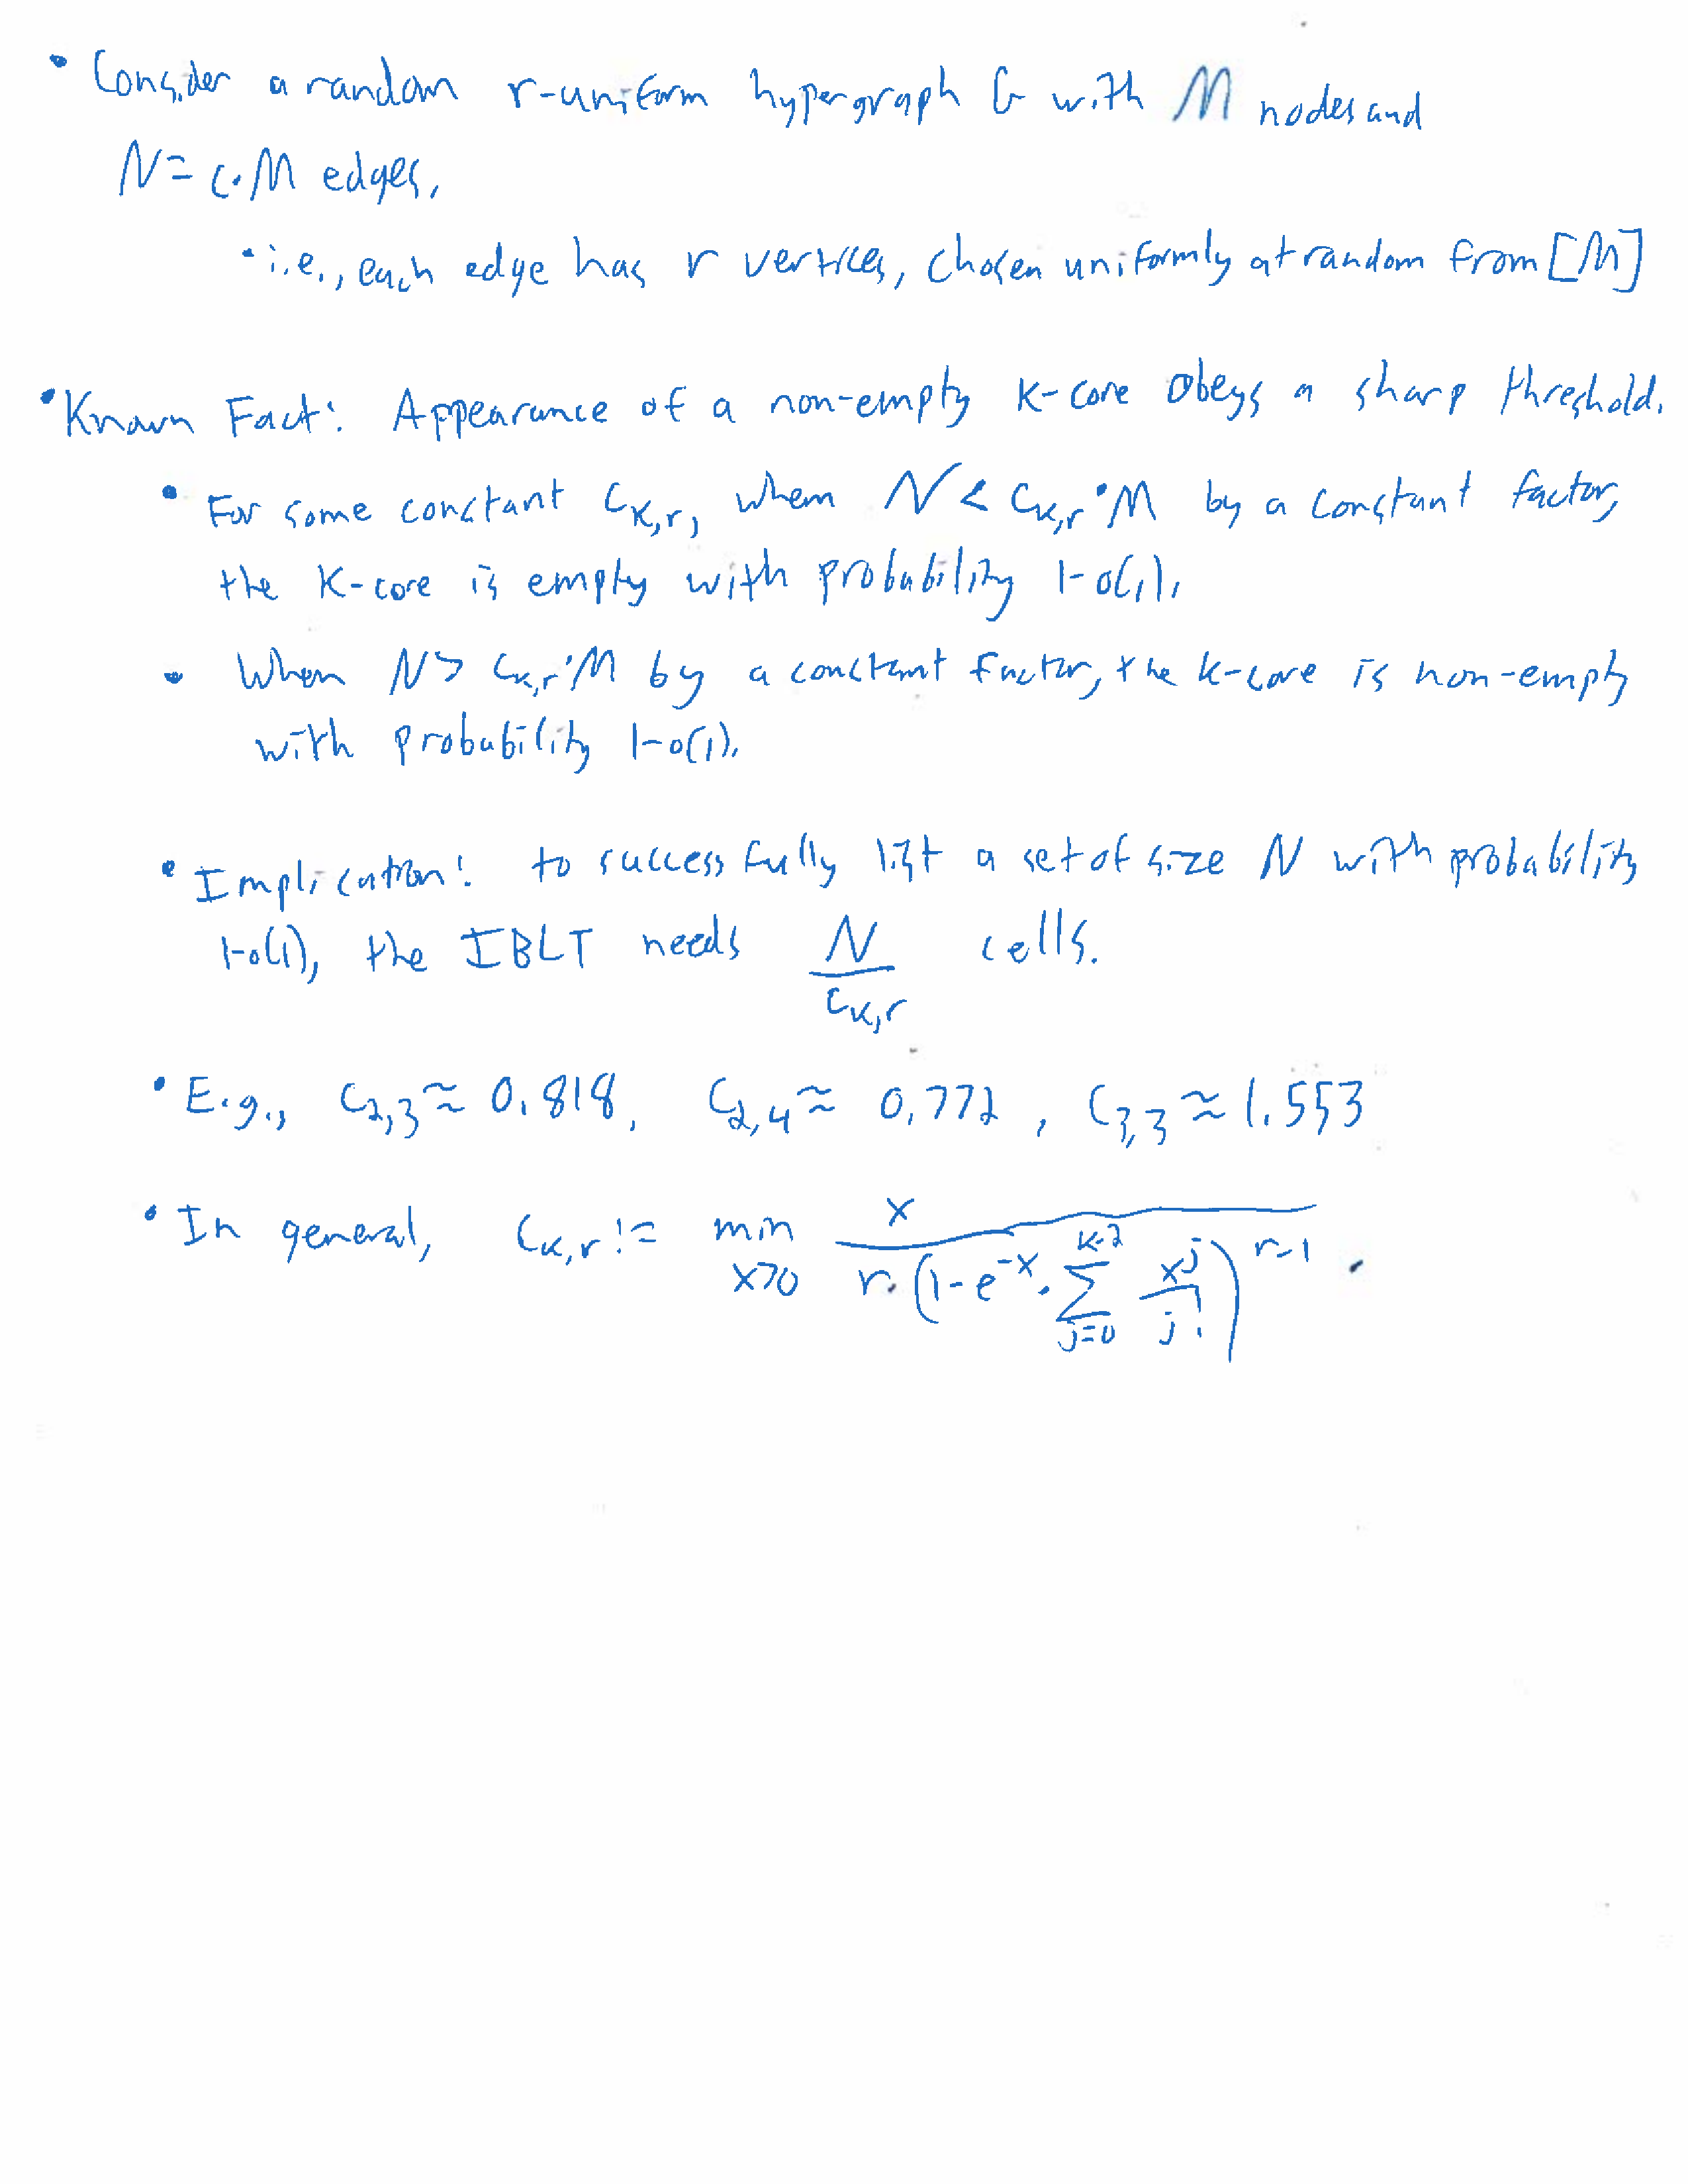 • Consider a random r-uniform hypergraph G with M nodes and
N = c·M edges.
• i.e., each edge has r vertices, chosen uniformly at random from [M]
• Known Fact: Appearance of a non-empty k-core obeys a sharp threshold.
• For some constant c_{k,r}, when N < c_{k,r}·M by a constant factor,
the k-core is empty with probability 1-o(1).
• When N > c_{k,r}·M by a constant factor, the k-core is non-empty
with probability 1-o(1).
• Implication: to successfully list a set of size N with probability
1-o(1), the IBLT needs N / c_{k,r} cells.
• E.g., c_{2,3} ≈ 0.818, c_{2,4} ≈ 0.772, c_{3,3} ≈ 1.553
• In general, c_{k,r} := min_{x>0} x / (r·(1-e^{-x}·∑_{j=0}^{k-2} x^j/j!)^{r-1}).